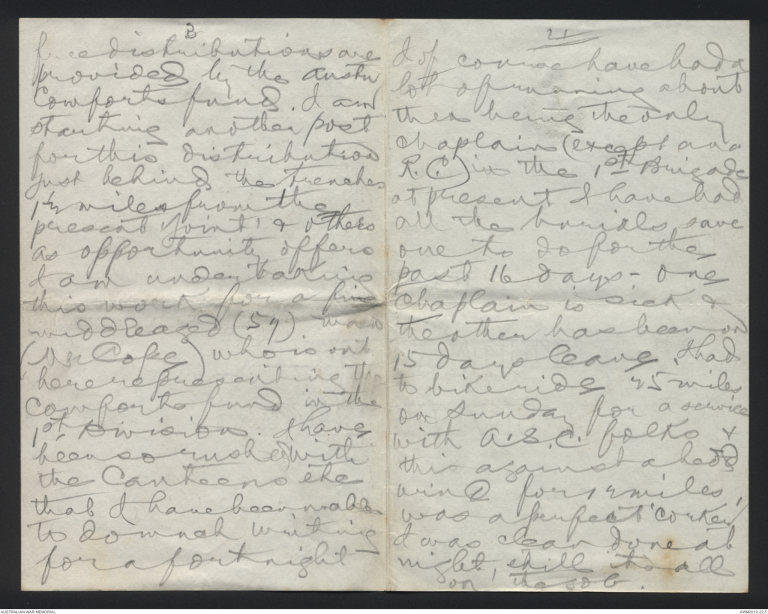 3
free distributions are
provided by the Austn
Comforts fund. I am
starting another post
for this distribution
just behind the trenches
1½ miles from the
present 'joint' & others
as opportunity offers
I am undertaking
this work for a fine
middleaged (54) man
(Mr Cope) who is out
here representing the
Comforts fund in the
1st Division. I have
been so rushed with
the Canteens etc
that I have been unable
to do much writing
for a fortnight
4
I of course have had a
lot of running about
then being the only
chaplain (except an a
R.C.) in the 1st Brigade
at present I have had
all the burials save
one to do for the
past 16 days - One
Chaplain is sick &
the other has been on
15 days leave. I had
to bike ride 25 miles
on Sunday for a service
with A.S.C. folks &
this against a head
wind for 12 miles,
was a perfect 'corker'
I was clean done at
night, still its all
on the job.
AUSTRALIAN WAR MEMORIAL